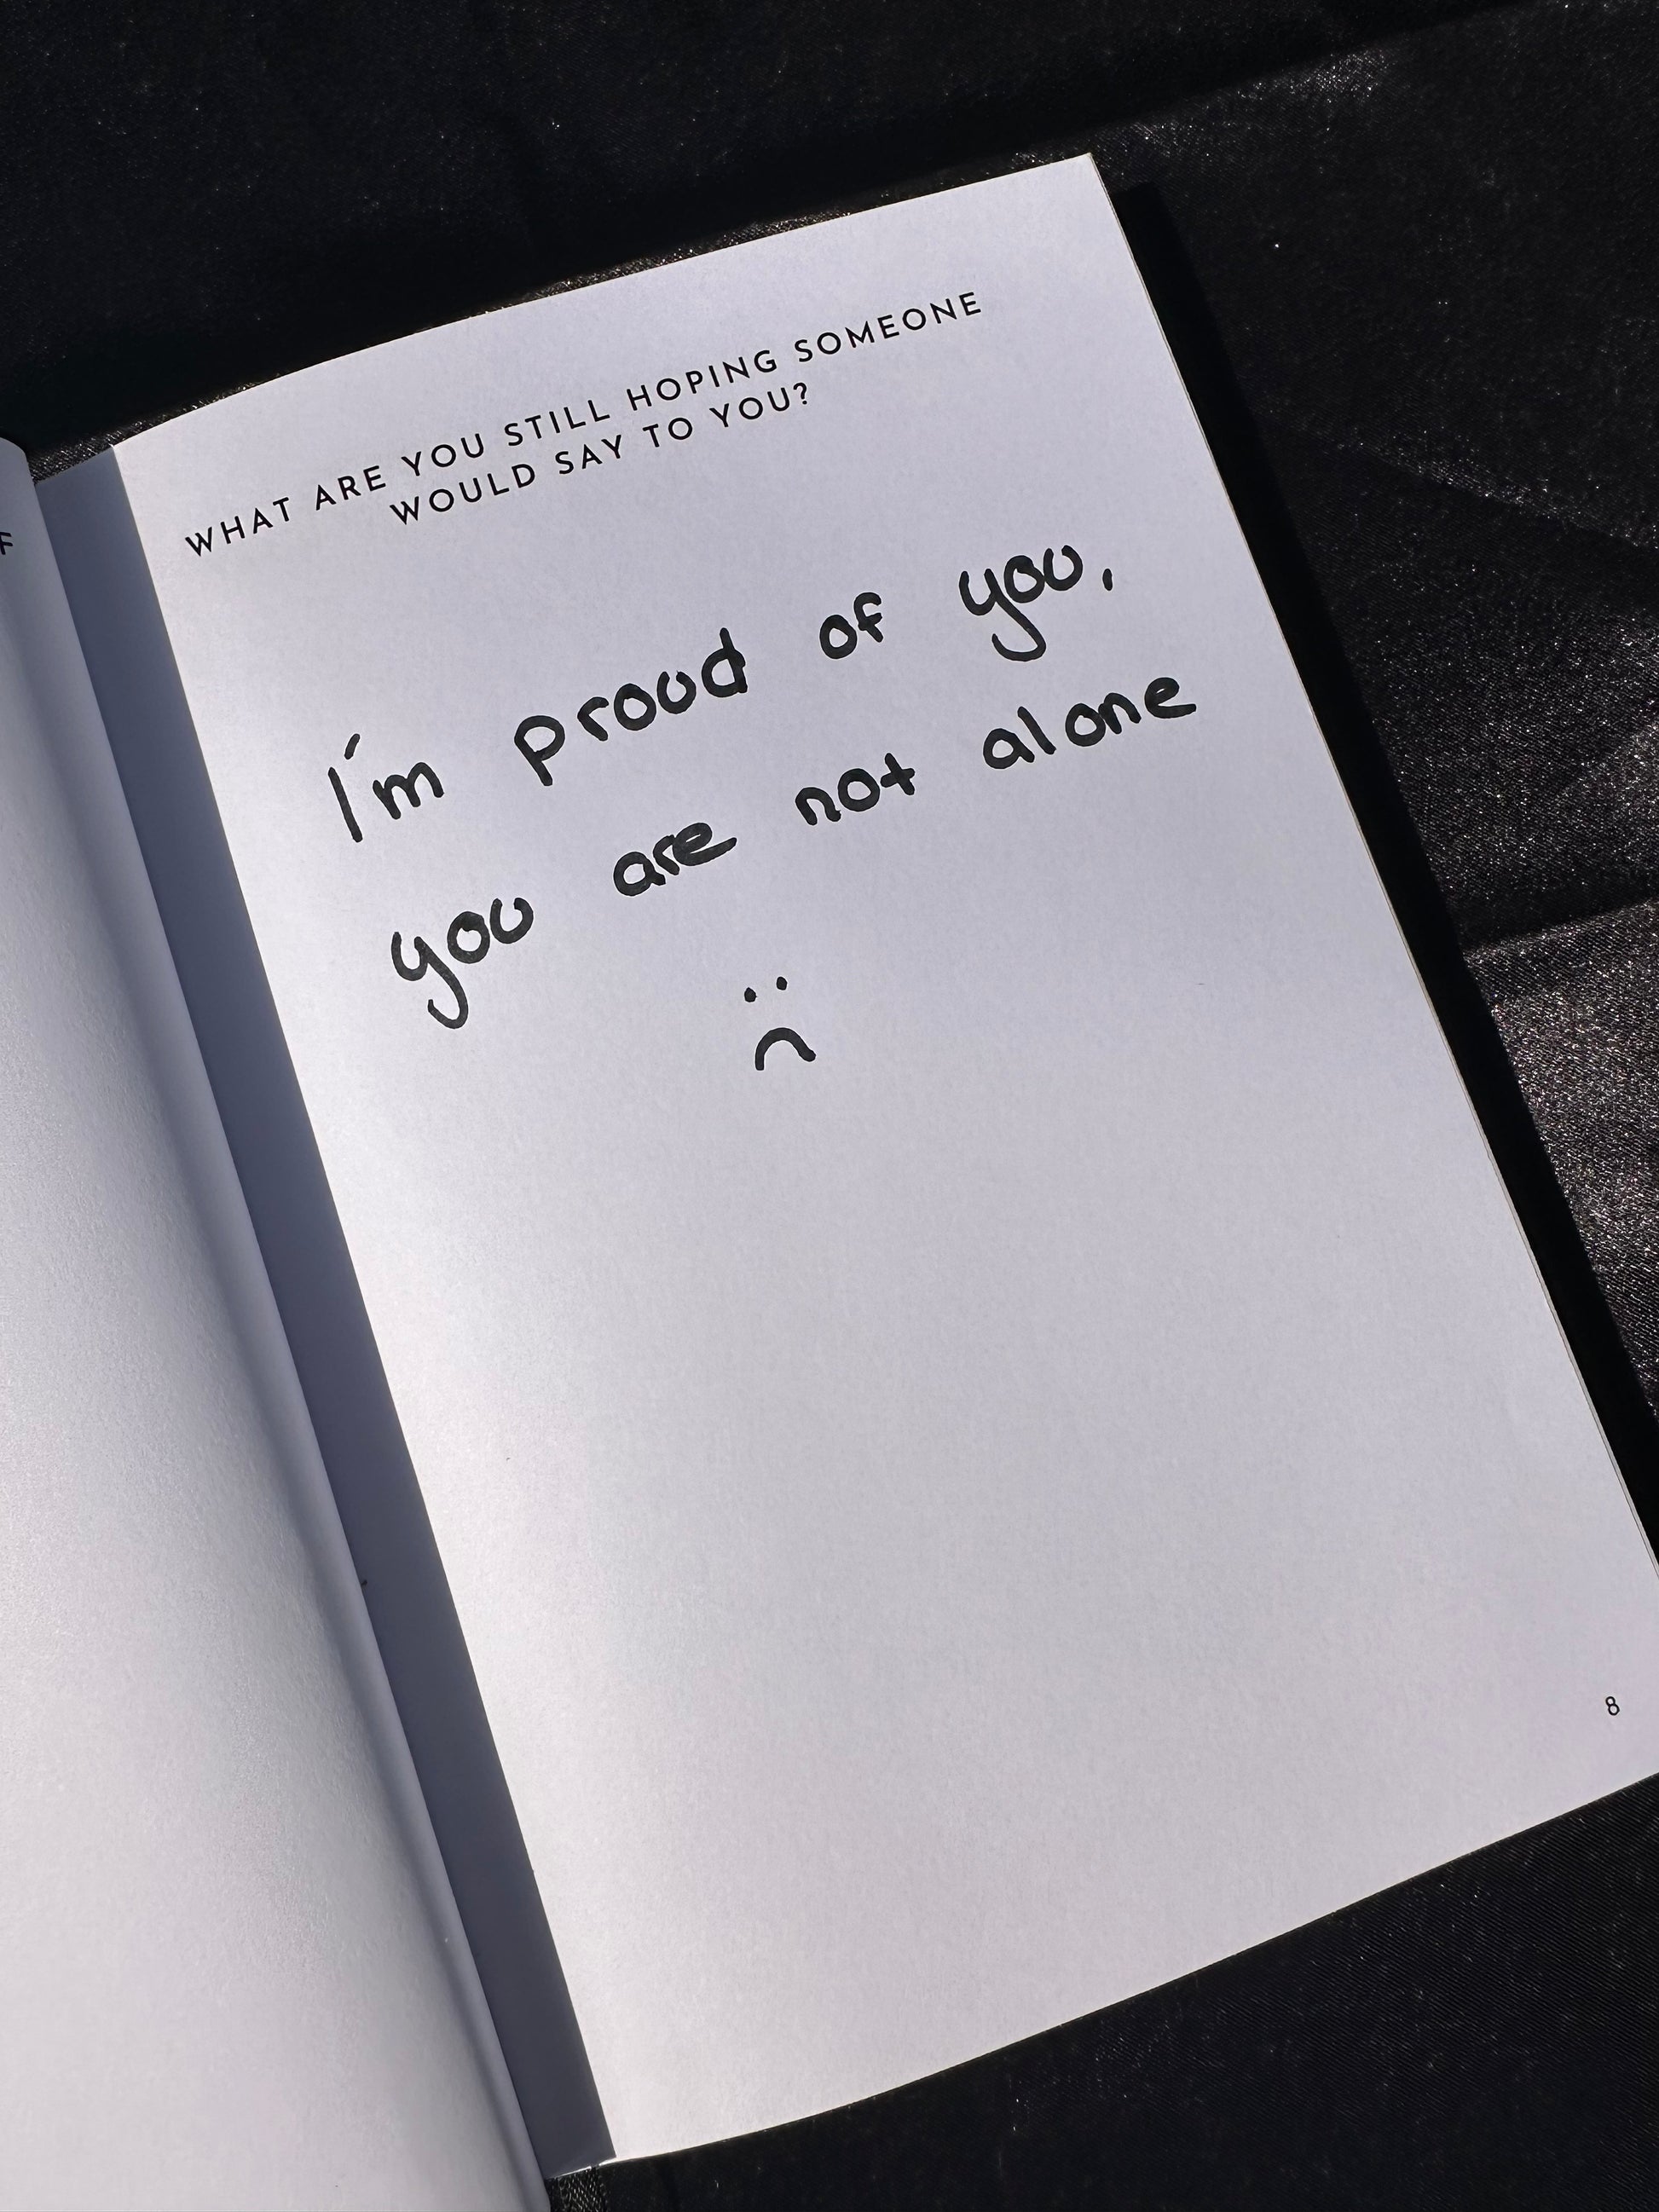 WHAT ARE YOU STILL HOPING SOMEONE
WOULD SAY TO YOU?
I'm proud of you,
you are not alone
:(
8
F